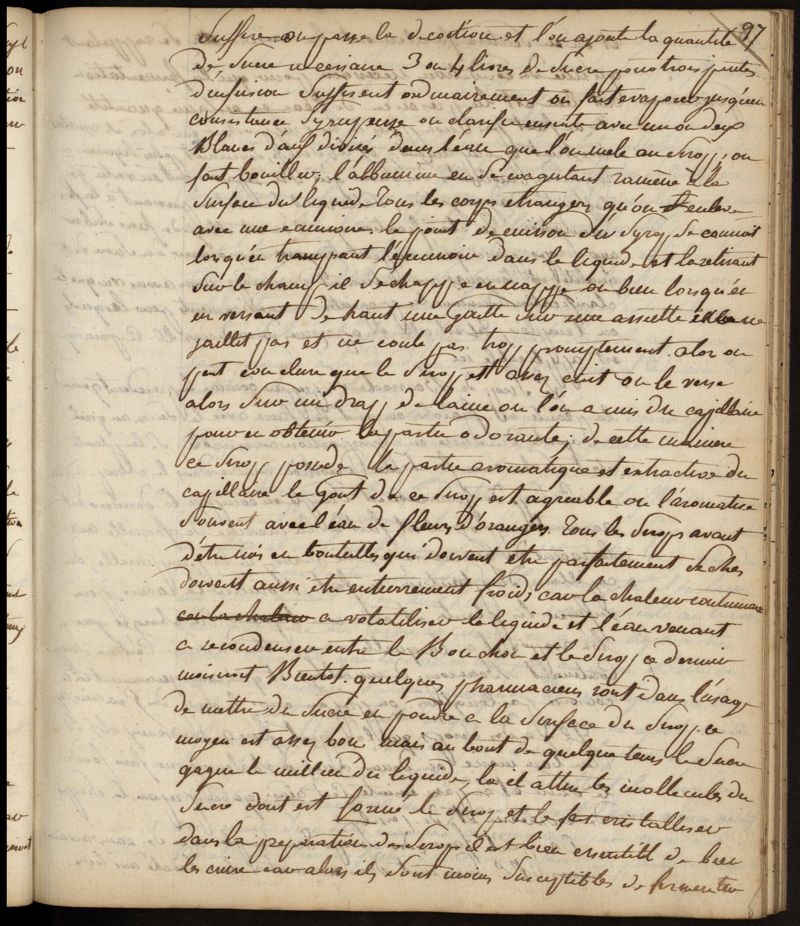 97
Suffire on passe la decoction et l'on ajoute la quantité
de Sucre necessaire 3 ou 4 livres de Sucre pour trois pintes
d'infusion Suffisent ordinairement on fait evaporer jusqu'en
consistance Syrupeuse on clarifie ensuite avec un ou deux
Blancs d'œuf divisés dans l'eau que l'on mele au Sirop, on
fait bouillir, l'albumine en Se coagulant ramène à la
Surface du liquide Tous les corps etrangers qu'on enleve
avec une ecumoire. le point de cuisson du Syrop Se connoit
lorsqu'en trempant l'écumoire dans le liquide et la retirant
Sur le champ il S'echappe en nappe ou bien lorsqu'en
en versant de haut une Goutte Sur une assiette elle ne
jaillit pas et ne coule pas trop promptement. alor on
peut conclure que le Sirop est assez cuit on le verse
alors Sur un drap de laine ou l'on a mis du capillaire
pour en obtenir la partie odorante; de cette maniere
ce Sirop possede la partie aromatique et extractive du
capillaire le Gout de ce Sirop est agreable on l'aromatise
Souvent avec l'eau de fleurs d'oranger. Tous les Sirops avant
d'être mis en bouteilles qui doivent etre parfaitement Seches
doivent aussi etre entierrement froids car la chaleur continuant
car la chaleur a volatiliser le liquide et l'eau venant
a recondenser entre le Bouchon et le Sirop ce dernier
moisiroit Bientot. quelques pharmaciens sont dans l'usage
de mettre du Sucre en poudre a la Surface du Sirop. ce
moyen est assez bon mais au bout de quelque tems le Sucre
gagne le millieu du liquide, la il attire les mollecules du
Sucre dont est formé le Sirop et le fait cristalliser
dans la preparation des Sirops il est bien essentiel de bien
les cuire car alors ils Sont moins Susceptibles de fermenter